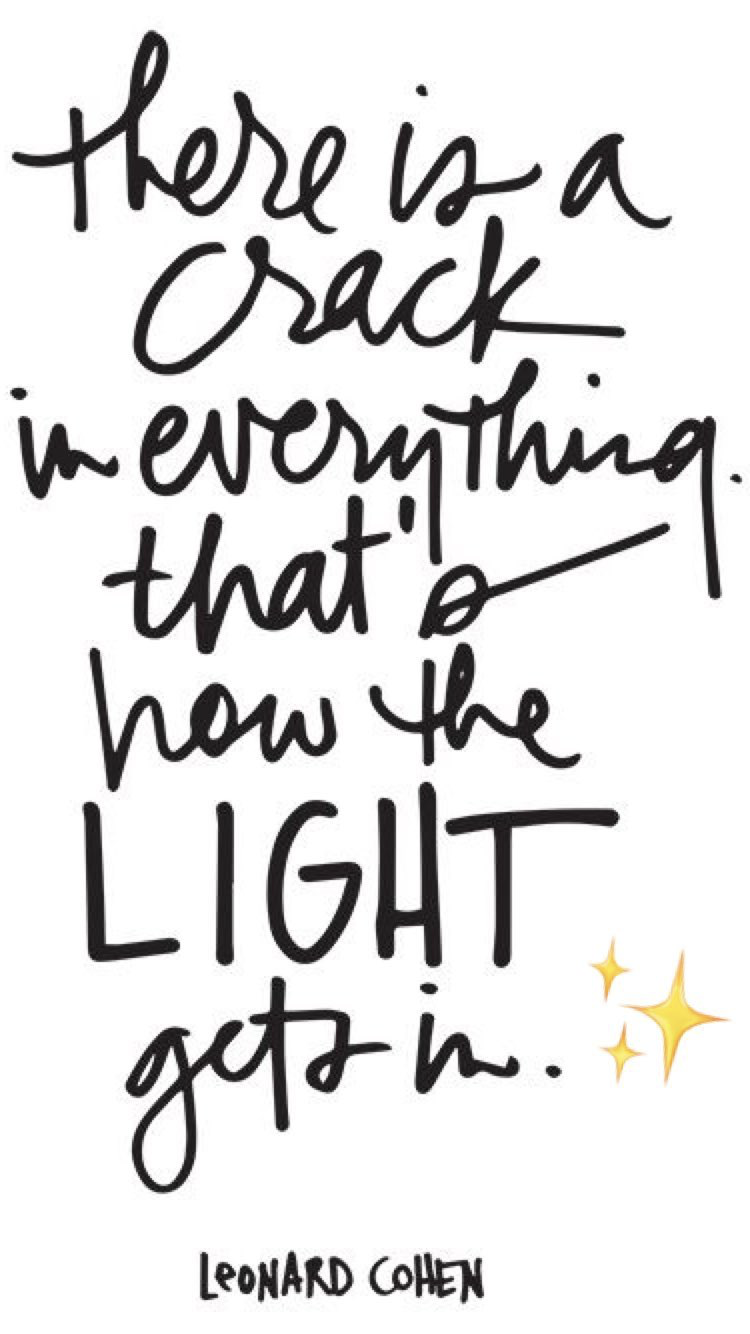 there is a
crack
in everything.
that's
how the
LIGHT
gets in.
LEONARD COHEN